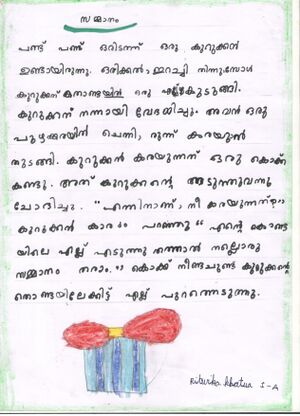 സമ്മാനം
പണ്ട് പണ്ട് ഒരിടത്ത് ഒരു കുറുക്കൻ
ഉണ്ടായിരുന്നു. ഒരിക്കൽ, ഇറച്ചി തിന്നുമ്പോൾ
കുറുക്കന് തൊണ്ടയിൽ ഒരു എല്ല് കുടുങ്ങി.
കുറുക്കന് നന്നായി വേദനിച്ചു. അവൻ ഒരു
പുഴക്കരയിൽ ചെന്നു, നിന്ന് കരയുവാൻ
തുടങ്ങി. കുറുക്കൻ കരയുന്നത് ഒരു കൊക്ക്
കണ്ടു. അത് കുറുക്കന്റെ അടുത്തുവന്നു
ചോദിച്ചു. "എന്തിനാണ് നീ കരയുന്നത്?"
കുറുക്കൻ കാരണം പറഞ്ഞു "എന്റെ തൊണ്ട
യിലെ എല്ല് എടുത്തു തന്നാൽ നല്ലൊരു
സമ്മാനം തരാം." കൊക്ക് നീണ്ടചുണ്ട് കുറുക്കന്റെ
തൊണ്ടയിലേക്കിട്ട് എല്ല് പുറത്തെടുത്തു.
Ritwika Khatua I-A